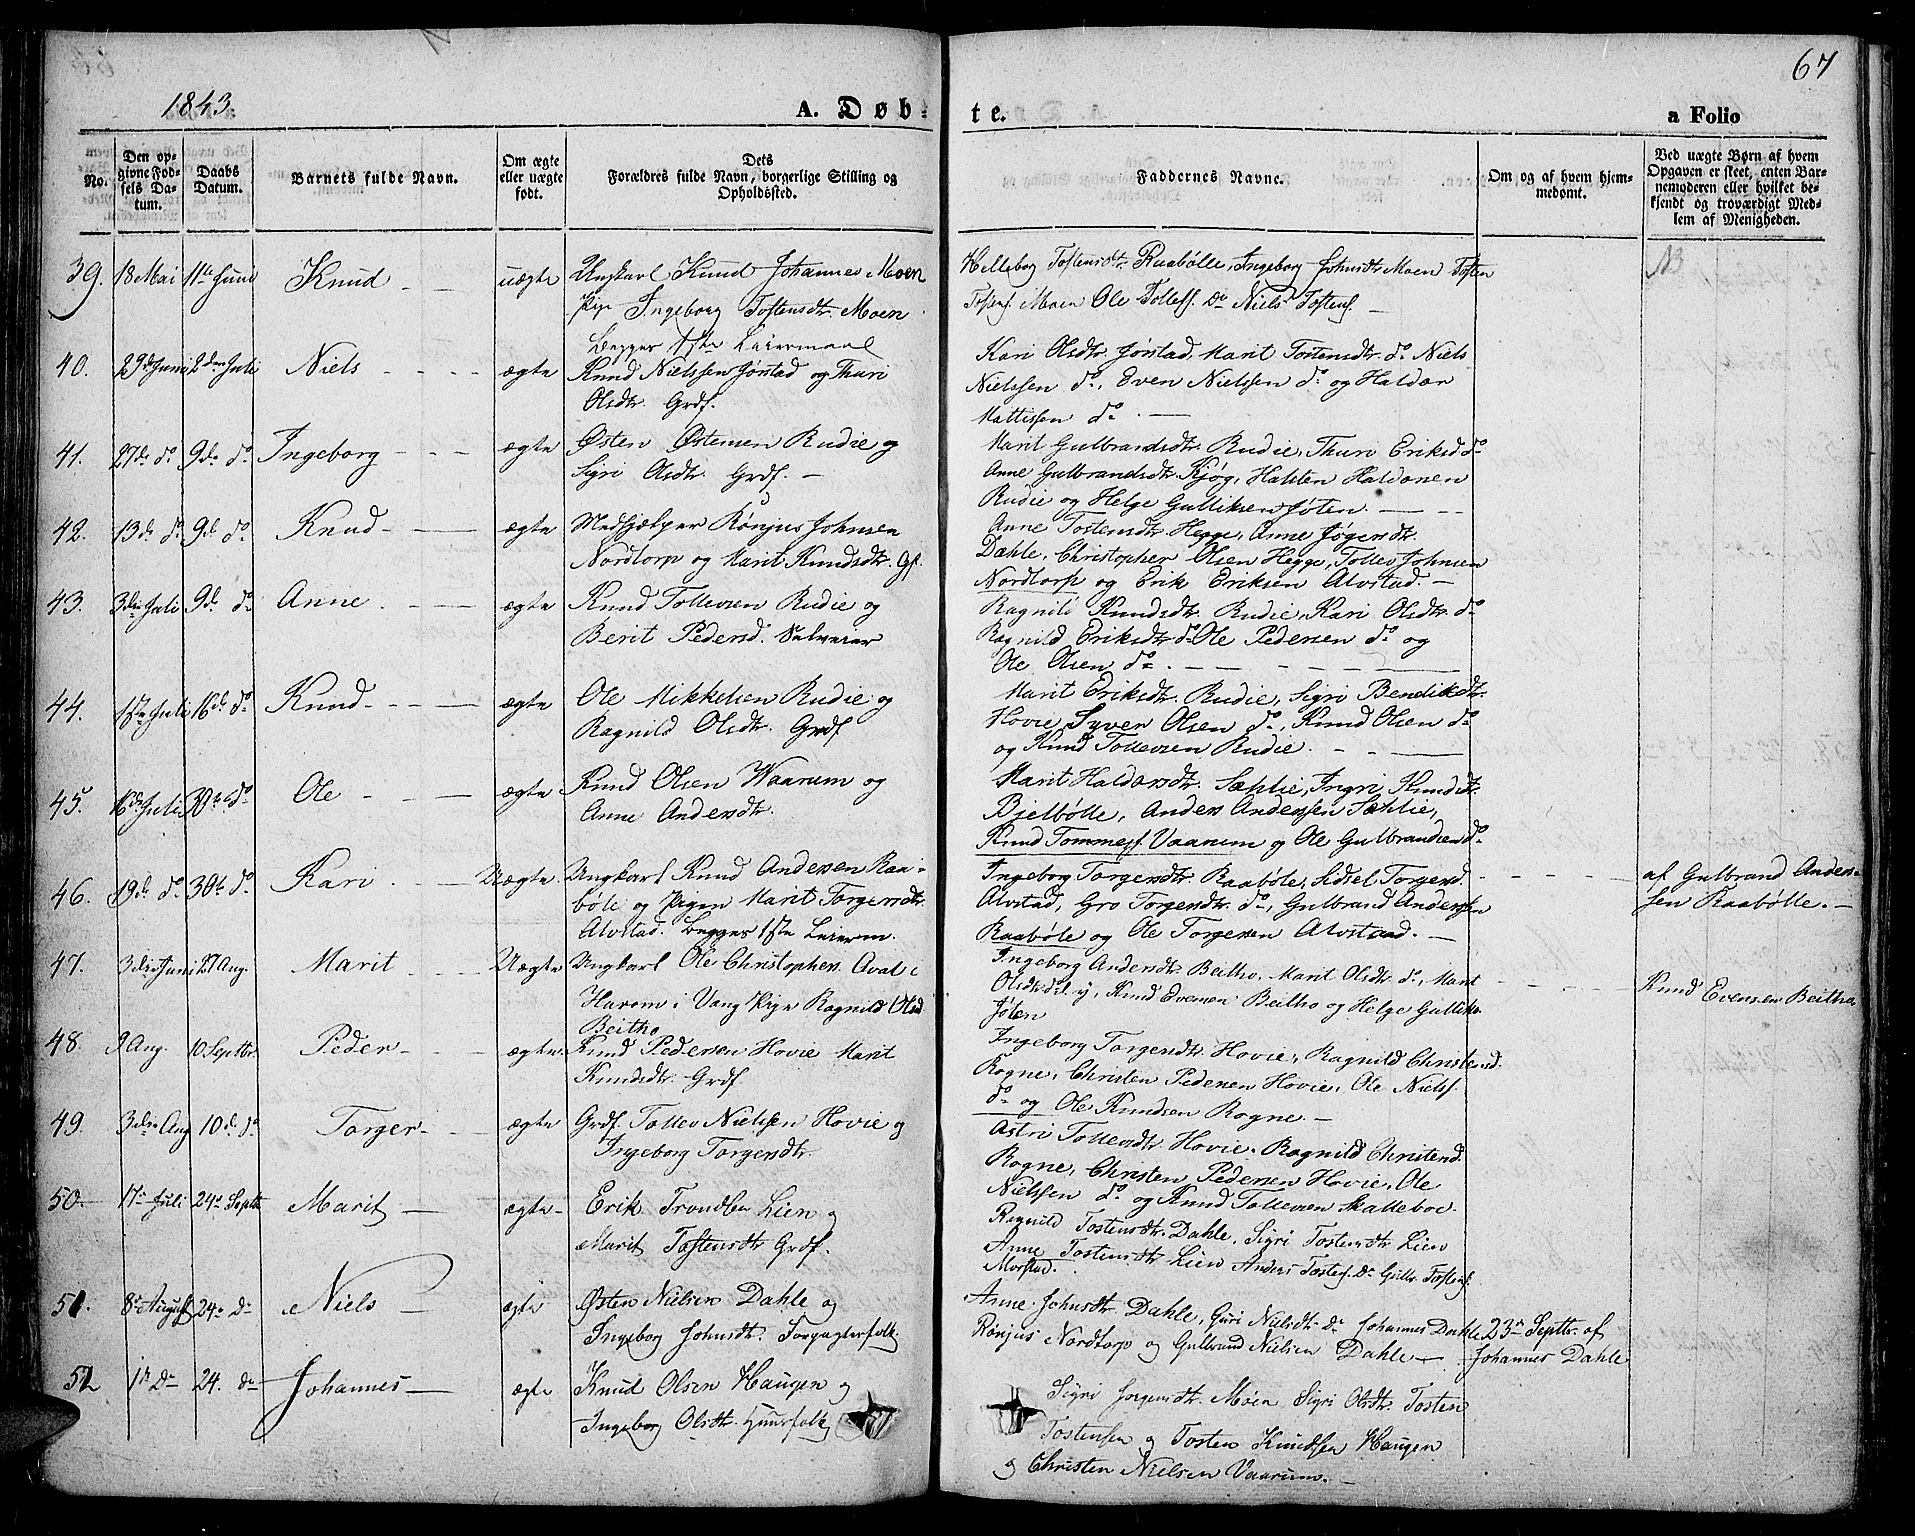 67
1843.
A. Døb-
te.
a Folio
No.
Den op-
givne Fød-
sels Da-
tum.
Daabs
Datum.
Barnets fulde Navn.
Om ægte
eller uægte
født.
Dets
Forældres fulde Navn, borgerlige Stilling og
Opholdssted.
Faddernes Navne.
Om og af hvem hjem-
medømt.
Ved uægte Børn af hvem
Opgaven er skeet, enten Bar-
nemoderen eller hvilket be-
kjendt og troværdigt Med-
lem af Menigheden.
39. 18 Mai 11te Juni Knud uægte Ungkarl Knud Johannes Moen
Pige Ingeborg Tostensdtr. Moen
Begges 1ste Leiermaal
Helleborg Tostensdtr. Raabølle, Ingeborg Johnsdtr Moen Tosten
Tostens. Moen Ole Tollefs. Do Niels Tostens.
NB
40. 23de Juni 2den Juli Niels ægte Knud Nielssen Jørstad og Thuri
Olsdtr. Grdf.
Kari Olsdtr. Jørstad. Marit Tostensdtr. do Niels
Nielssen do, Even Nielssen do og Haldor
Mattissen do
41. 27de do 9de do Ingeborg ægte Østen Østensen Rudie og
Sigri Olsdtr. Grdf.
Marit Gulbrandsdtr. Rudie, Thuri Eriksd. do
Anne Gulbrandsdtr. Kjøg, Halsten Haldorsen
Rudie og Helge Gulliksen Jøten.
42. 13de do 9de do Knud ægte Medhjælper Rønjus Johnsen
Nordtorp og Marit Knudsdtr. Gf.
Anne Tostensdtr. Hegge, Anne Jøgersdtr.
Dahle, Christopher Olsen Hegge, Tollev Johnsen
Nordtorp og Erik Eriksen Alvstad.
43. 3die Juli 9de do Anne ægte Knud Tollevsen Rudie og
Berit Pedersd. Selveier
Ragnild Knudsdtr. Rudie, Kari Olsdtr. do
Ragnild Eriksdtr. do Ole Pedersen do og
Ole Olsen do.
44. 1ste Juli 16de do Knud ægte Ole Mikkelsen Rudie og
Ragnild Olsdtr. Grdf
Marit Eriksdtr. Rudie, Sigri Bendiksdtr.
Hovie, Syver Olsen do, Knud Olsen do
og Knud Tollevsen Rudie.
45. 16de Juli 30te do Ole ægte Knud Olsen Waarum og
Anne Andersdtr.
Marit Haldorsdtr. Sæhlie, Ingri Knudsdtr
Bjelbølle, Anders Anderssen Sæhlie,
Knud Tommess. Vaarum og Ole Gulbrandsen do
46. 19de do 30te do Kari Uægte Ungkarl Knud Andersen Raa-
bøle og Pigen Marit Torgersdtr.
Alvstad. Begges 1ste Leierm.
Ingeborg Torgersdtr. Raabøle, Sidsel Torgersd.
Alvstad, Gro Torgersdtr. do, Gulbrand Anderssen
Raabøle og Ole Torgersen Alvstad.
af Gulbrand Anders-
sen Raabølle.
47. 3die Juni 27 Aug. Marit Uægte Ungkarl Ole Christophers. Aval i
Harom i Vang Pige Ragnild Olsd
Beitho
Ingeborg Andersdtr. Beitho, Marit Olsdtr. do, Marit
Knud Evensen Beitho og Helge Gulliks.
Jøten
Knud Evensen Beitho
48. 9 Aug. 10 Septbr. Peder ægte Knud Pedersen Hovie Marit
Knudsdtr. Grdf
Ingeborg Torgersdtr. Hovie, Ragnild Christensd.
Rogne, Christen Pedersen Hovie, Ole Nielss.
do og Ole Knudsen Rogne.
49. 3die Aug 10de do Torger ægte Grdf. Tollev Nielssen Hovie og
Ingeborg Torgersdtr.
Astri Tollevsdtr. Hovie, Ragnild Christensd.
Rogne, Christen Pedersen Hovie, Ole
Nielssen do og Knud Tollevsen Skatteboe.
50. 17de Juli 24de Septbr Marit ægte Erik Trondsen Lien og
Marit Tostensdtr Grdf.
Ragnild Tostensdtr. Dahle, Sigri Tostensdtr Lien
Anne Tostensdtr Lien Anders Tostens. Do Gulbr. Tostens.
Morstad.
51. 8de August 24de Do Niels ægte Østen Nielsen Dahle og
Ingeborg Johnsdtr. Forpagterfolk.
Anne Johnsdtr. Dahle, Guri Nielsdtr. Do Johannes Dahle
Rønjus Nordtorp og Gulbrand Nielsen Dahle
23de Septbr. af
Johannes Dahle
52 1de Do 24. Do Johannes ægte Knud Olsen Haugen og
Ingeborg Olsdtr. Huusfolk
Sigri Jorgensdtr. Moen Sigri Olsdtr. Tosten
Tostensen og Tosten Knudsen Haugen
og Christen Nielsen Vaarum.